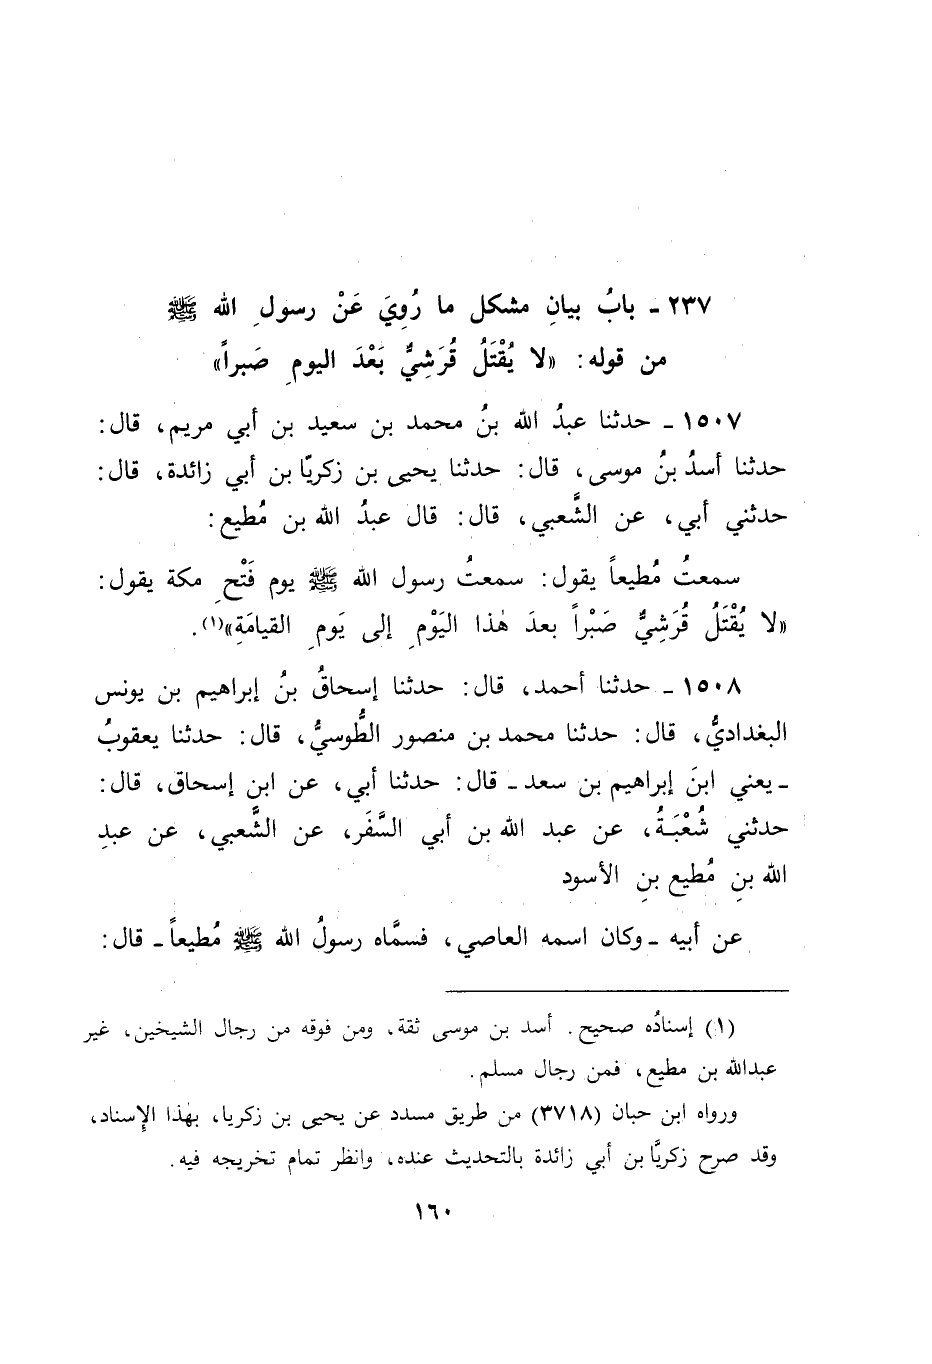 ٢٣٧ ـ بابُ بيانِ مشكل ما رُوِيَ عَنْ رسولِ الله ﷺ
من قوله: «لا يُقْتَلُ قُرَشِيٌّ بَعْدَ اليومِ صَبراً»
١٥٠٧ ـ حدثنا عبدُ الله بنُ محمد بن سعيد بن أبي مريم، قال:
حدثنا أسدُ بنُ موسى، قال: حدثنا يحيى بن زكريّا بن أبي زائدة، قال:
حدثني أبي، عن الشَّعبي، قال: قال عبدُ الله بن مُطيع:
سمعتُ مُطيعاً يقول: سمعتُ رسول الله ﷺ يوم فَتْحِ مكة يقول:
«لا يُقْتَلُ قُرَشِيٌّ صَبْراً بعدَ هٰذا اليَوْمِ إلى يَومِ القيامَةِ»(١).
١٥٠٨ ـ حدثنا أحمد، قال: حدثنا إسحاقُ بنُ إبراهيم بن يونس
البغداديُّ، قال: حدثنا محمد بن منصور الطُّوسيُّ، قال: حدثنا يعقوبُ
ـ يعني ابنَ إبراهيم بن سعد ـ قال: حدثنا أبي، عن ابن إسحاق، قال:
حدثني شُعْبَةُ، عن عبد الله بن أبي السَّفَر، عن الشَّعبي، عن عبدِ
الله بنِ مُطيع بنِ الأسود
عن أبيه ـ وكان اسمه العاصي، فسمَّاه رسولُ الله ﷺ مُطيعاً ـ قال:
(١) إسنادُه صحيح. أسد بن موسى ثقة، ومن فوقه من رجال الشيخين، غير
عبدالله بن مطيع، فمن رجال مسلم.
ورواه ابن حبان (٣٧١٨) من طريق مسدد عن يحيى بن زكريا، بهٰذا الإسناد،
وقد صرح زكريَّا بن أبي زائدة بالتحديث عنده، وانظر تمام تخريجه فيه.
١٦٠